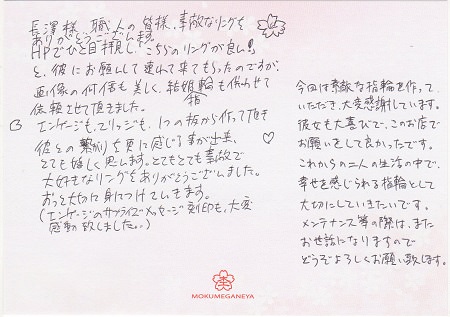 長澤様、職人の皆様、素敵なリングを
ありがとうございます。
HPでひと目拝見し、こちらのリングが良い！
と、彼にお願いして連れて来てもらったのですが、
画像の何倍も美しく、結婚指輪も併わせて
依頼させて頂きました。
エンゲージも、マリッジも、1つの板から作って頂き
彼との繋がりを更に感じる事が出来、
とても嬉しく思います。とてもとても素敵で
大好きなリングをありがとうございました。
ずっと大切に身につけていきます。
(エンゲージのサプライズメッセージ刻印も、大変
感動致しました。。)
今回は素敵な指輪を作って
いただき、大変感謝しています。
彼女も大喜びで、このお店で
お願いをして良かったです。
これからの二人の生活の中で、
幸せを感じられる指輪として
大切にしていきたいです。
メンテナンス等の際は、また
お世話になりますので
どうぞよろしくお願い致します。
MOKUMEGANEYA